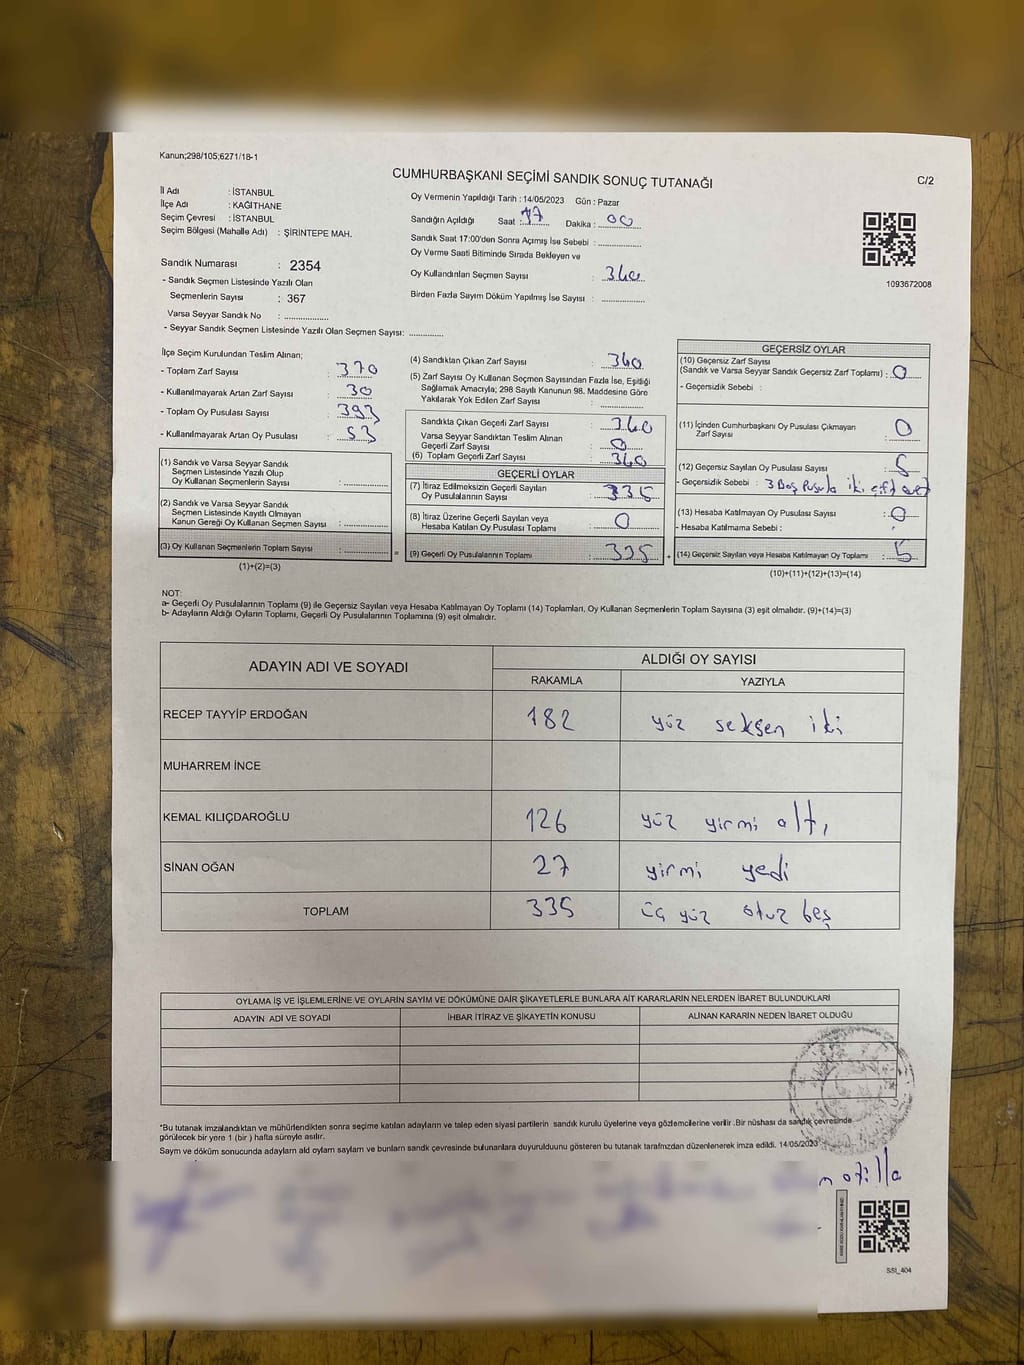 Kanun;298/105;6271/18-1
CUMHURBAŞKANI SEÇİMİ SANDIK SONUÇ TUTANAĞI
C/2
İl Adı : İSTANBUL
İlçe Adı : KAĞITHANE
Seçim Çevresi : İSTANBUL
Seçim Bölgesi (Mahalle Adı) : ŞİRİNTEPE MAH.
Sandık Numarası : 2354
- Sandık Seçmen Listesinde Yazılı Olan
Seçmenlerin Sayısı : 367
Varsa Seyyar Sandık No : ..................
- Seyyar Sandık Seçmen Listesinde Yazılı Olan Seçmen Sayısı: .............
Oy Vermenin Yapıldığı Tarih : 14/05/2023 Gün : Pazar
Sandığın Açıldığı Saat : 17 Dakika : 00
Sandık Saat 17:00'den Sonra Açımış İse Sebebi : ..................
Oy Verme Saati Bitiminde Sırada Bekleyen ve
Oy Kullandırılan Seçmen Sayısı : 340
Birden Fazla Sayım Döküm Yapılmış İse Sayısı : ..................
1093672008
İlçe Seçim Kurulundan Teslim Alınan;
- Toplam Zarf Sayısı : 370
- Kullanılmayarak Artan Zarf Sayısı : 30
- Toplam Oy Pusulası Sayısı : 393
- Kullanılmayarak Artan Oy Pusulası : 53
(1) Sandık ve Varsa Seyyar Sandık
Seçmen Listesinde Yazılı Olup
Oy Kullanan Seçmenlerin Sayısı : ..................
(2) Sandık ve Varsa Seyyar Sandık
Seçmen Listesinde Kayıtlı Olmayan
Kanun Gereği Oy Kullanan Seçmen Sayısı : ..................
(3) Oy Kullanan Seçmenlerin Toplam Sayısı : .................. =
(1)+(2)=(3)
(4) Sandıktan Çıkan Zarf Sayısı : 340
(5) Zarf Sayısı Oy Kullanan Seçmen Sayısından Fazla İse, Eşitliği
Sağlamak Amacıyla; 298 Sayılı Kanunun 98. Maddesine Göre
Yakılarak Yok Edilen Zarf Sayısı : ..................
Sandıkta Çıkan Geçerli Zarf Sayısı : 340
Varsa Seyyar Sandıktan Teslim Alınan
Geçerli Zarf Sayısı : 0
(6) Toplam Geçerli Zarf Sayısı : 340
GEÇERLİ OYLAR
(7) İtiraz Edilmeksizin Geçerli Sayılan
Oy Pusulalarının Sayısı : 335
(8) İtiraz Üzerine Geçerli Sayılan veya
Hesaba Katılan Oy Pusulası Toplamı : 0
(9) Geçerli Oy Pusulalarının Toplamı : 335 +
GEÇERSİZ OYLAR
(10) Geçersiz Zarf Sayısı
(Sandık ve Varsa Seyyar Sandık Geçersiz Zarf Toplamı) : 0
- Geçersizlik Sebebi :
(11) İçinden Cumhurbaşkanı Oy Pusulası Çıkmayan
Zarf Sayısı : 0
(12) Geçersiz Sayılan Oy Pusulası Sayısı : 5
- Geçersizlik Sebebi : 3 Boş Pusula iki çift evet
(13) Hesaba Katılmayan Oy Pusulası Sayısı : 0
- Hesaba Katılmama Sebebi :
(14) Geçersiz Sayılan veya Hesaba Katılmayan Oy Toplamı : 5
(10)+(11)+(12)+(13)=(14)
NOT:
a- Geçerli Oy Pusulalarının Toplamı (9) ile Geçersiz Sayılan veya Hesaba Katılmayan Oy Toplamı (14) Toplamları, Oy Kullanan Seçmenlerin Toplam Sayısına (3) eşit olmalıdır. (9)+(14)=(3)
b- Adayların Aldığı Oyların Toplamı, Geçerli Oy Pusulalarının Toplamına (9) eşit olmalıdır.
ADAYIN ADI VE SOYADI ALDIĞI OY SAYISI
RAKAMLA YAZIYLA
RECEP TAYYİP ERDOĞAN 182 yüz seksen iki
MUHARREM İNCE
KEMAL KILIÇDAROĞLU 126 yüz yirmi altı
SİNAN OĞAN 27 yirmi yedi
TOPLAM 335 üç yüz otuz beş
OYLAMA İŞ VE İŞLEMLERİNE VE OYLARIN SAYIM VE DÖKÜMÜNE DAİR ŞİKAYETLERLE BUNLARA AİT KARARLARIN NELERDEN İBARET BULUNDUKLARI
ADAYIN ADI VE SOYADI İHBAR İTİRAZ VE ŞİKAYETİN KONUSU ALINAN KARARIN NEDEN İBARET OLDUĞU
*Bu tutanak imzalandıktan ve mühürlendikten sonra seçime katılan adayların ve talep eden siyasi partilerin sandık kurulu üyelerine veya gözlemcilerine verilir .Bir nüshası da sandık çevresinde
görülecek bir yere 1 (bir ) hafta süreyle asılır.
Sayım ve döküm sonucunda adayların ald oyların sayların ve bunların sandk çevresinde bulunanlara duyurulduunu gösteren bu tutanak tarafmzdan düzenlenerek imza edildi. 14/05/2023
SSI_404